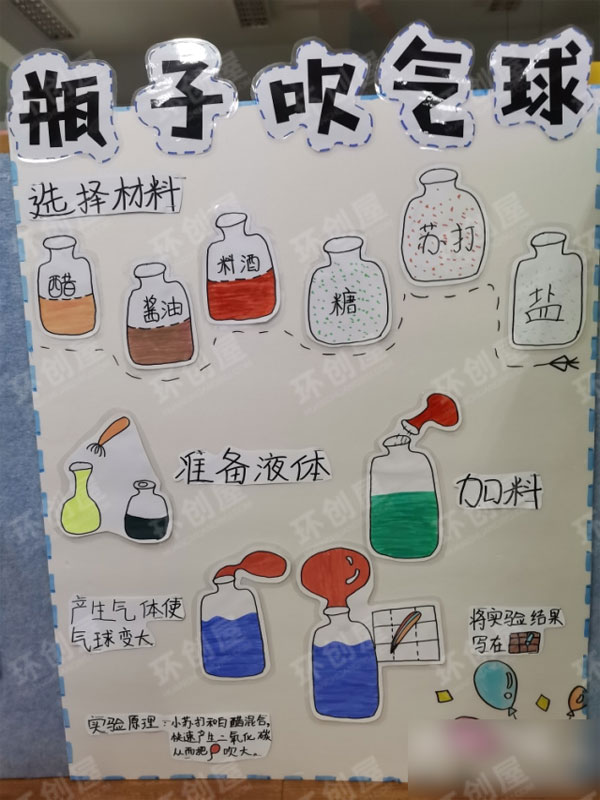 瓶子吹气球
选择材料
醋
酱油
料酒
糖
苏打
盐
准备液体
加料
产生气体使
气球变大
将实验结果
写在
实验原理：小苏打和白醋混合，
快速产生二氧化碳
从而把 吹大。
环创屋